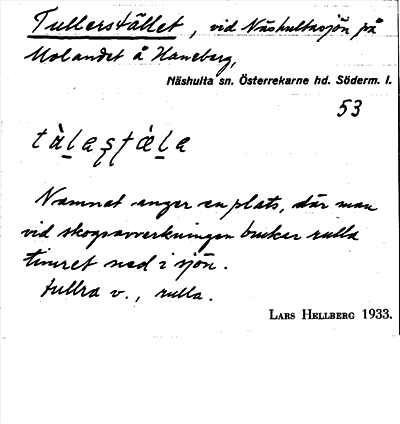 Tullerstället, vid Näshultasjön på
Molandet å Haneberg,
Näshulta sn. Österrekarne hd. Söderm. l.
53
Namnet anger en plats, där man
vid skogsavverkningen brukar rulla
timret ned i sjön.
tullra v., rulla.
LARS HELLBERG 1933.